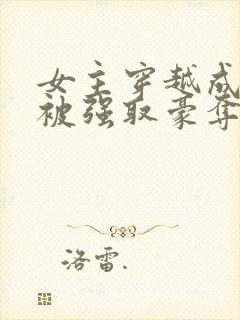 女主穿越成
被强取豪夺
洛雷.